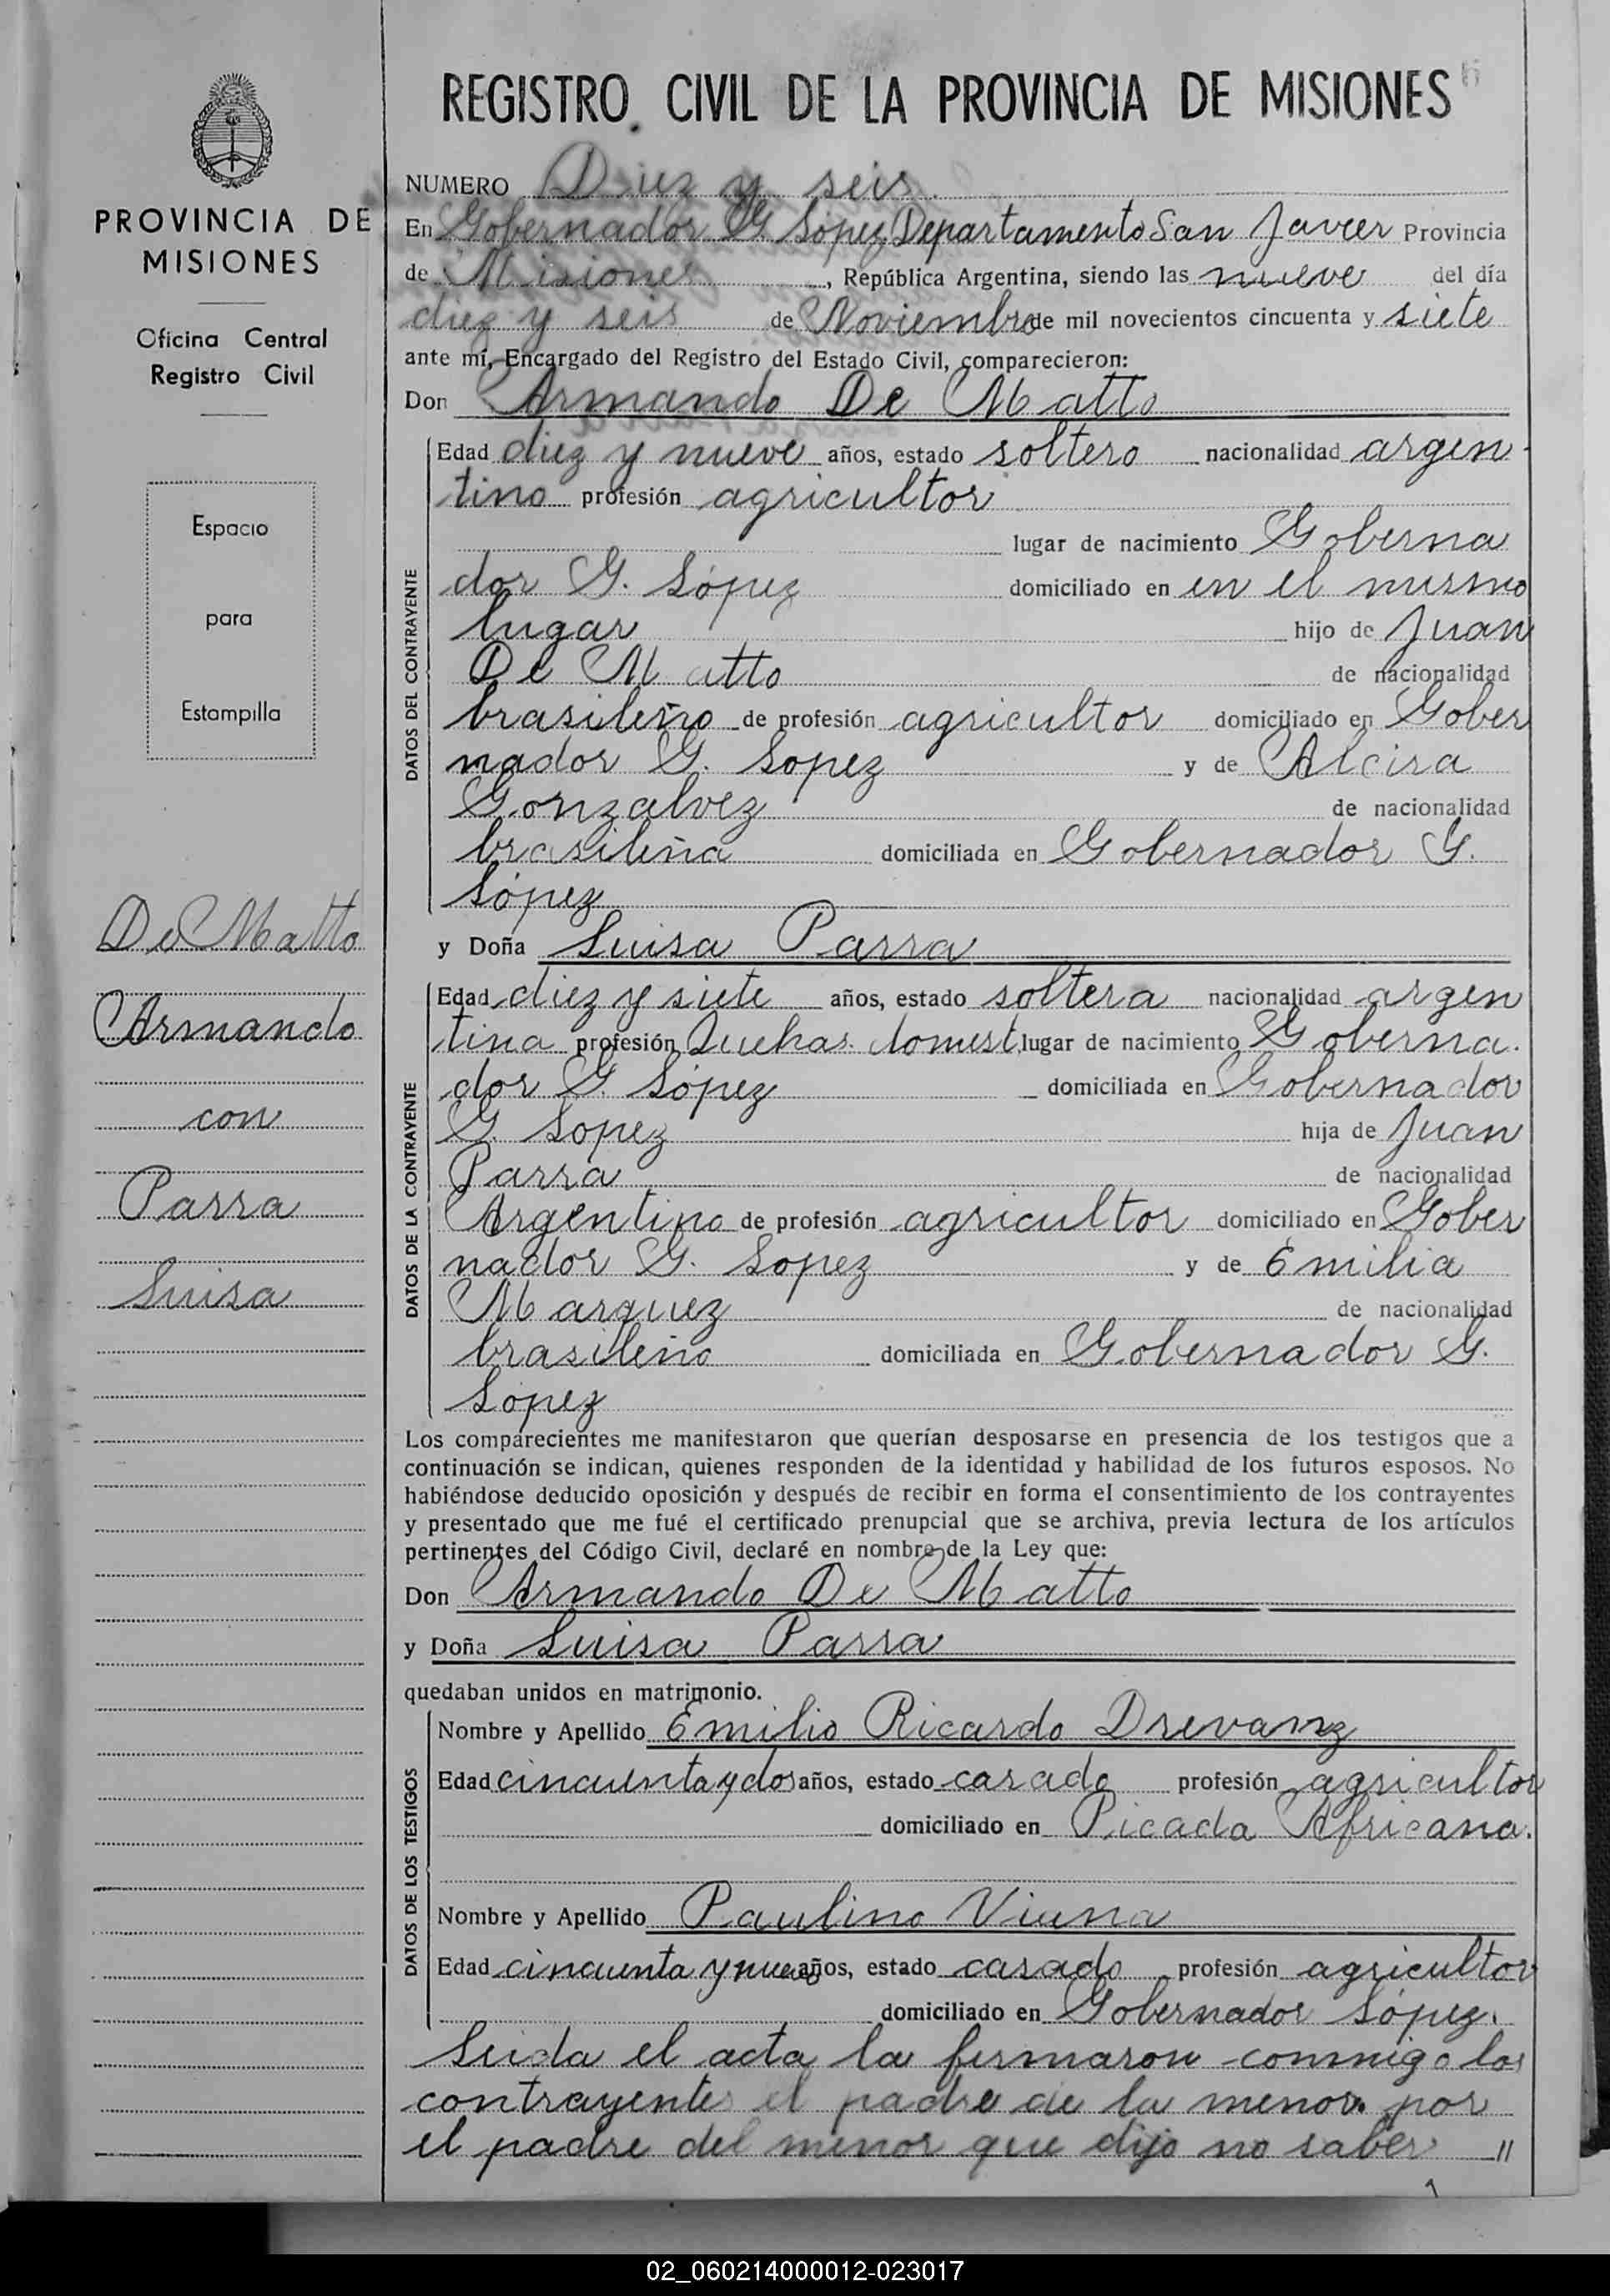 REGISTRO CIVIL DE LA PROVINCIA DE MISIONES
PROVINCIA DE
MISIONES
Oficina Central
Registro Civil
Espacio
para
Estampilla
De Matto
Armando
con
Parra
Luisa
NUMERO Diez y seis.
En Gobernador G López Departamento San Javier Provincia
de Misiones, República Argentina, siendo las nueve del día
diez y seis de Noviembre de mil novecientos cincuenta y siete
ante mí, Encargado del Registro del Estado Civil, comparecieron:
Don Armando De Matto
DATOS DEL CONTRAYENTE
Edad diez y nueve años, estado soltero nacionalidad argen-
tino profesión agricultor
lugar de nacimiento Goberna
dor G. López domiciliado en en el mismo
lugar hijo de Juan
De Matto de nacionalidad
brasileño de profesión agricultor domiciliado en Gober
nador G. Lopez y de Alcira
Gonzalvez de nacionalidad
brasileña domiciliada en Gobernador G.
López
y Doña Luisa Parra
DATOS DE LA CONTRAYENTE
Edad diez y siete años, estado soltera nacionalidad argen
tina profesión Quehas. domest. lugar de nacimiento Goberna.
dor G. López domiciliada en Gobernador
G. Lopez hija de Juan
Parra de nacionalidad
Argentino de profesión agricultor domiciliado en Gober
nador G. Lopez y de Emilia
Marquez de nacionalidad
brasileño domiciliada en Gobernador G.
Lopez
Los comparecientes me manifestaron que querían desposarse en presencia de los testigos que a
continuación se indican, quienes responden de la identidad y habilidad de los futuros esposos. No
habiéndose deducido oposición y después de recibir en forma el consentimiento de los contrayentes
y presentado que me fué el certificado prenupcial que se archiva, previa lectura de los artículos
pertinentes del Código Civil, declaré en nombre de la Ley que:
Don Armando De Matto
y Doña Luisa Parra
quedaban unidos en matrimonio.
DATOS DE LOS TESTIGOS
Nombre y Apellido Emilio Ricardo Drevanz
Edad cincuenta y dos años, estado casado profesión agricultor
domiciliado en Picada Africana.
Nombre y Apellido Paulino Viana
Edad cincuenta y nueve años, estado casado profesión agricultor
domiciliado en Gobernador López.
Leida el acta la firmaron conmigo los
contrayentes el padre de la menor. por
el padre del menor que dijo no saber //
02_060214000012-023017